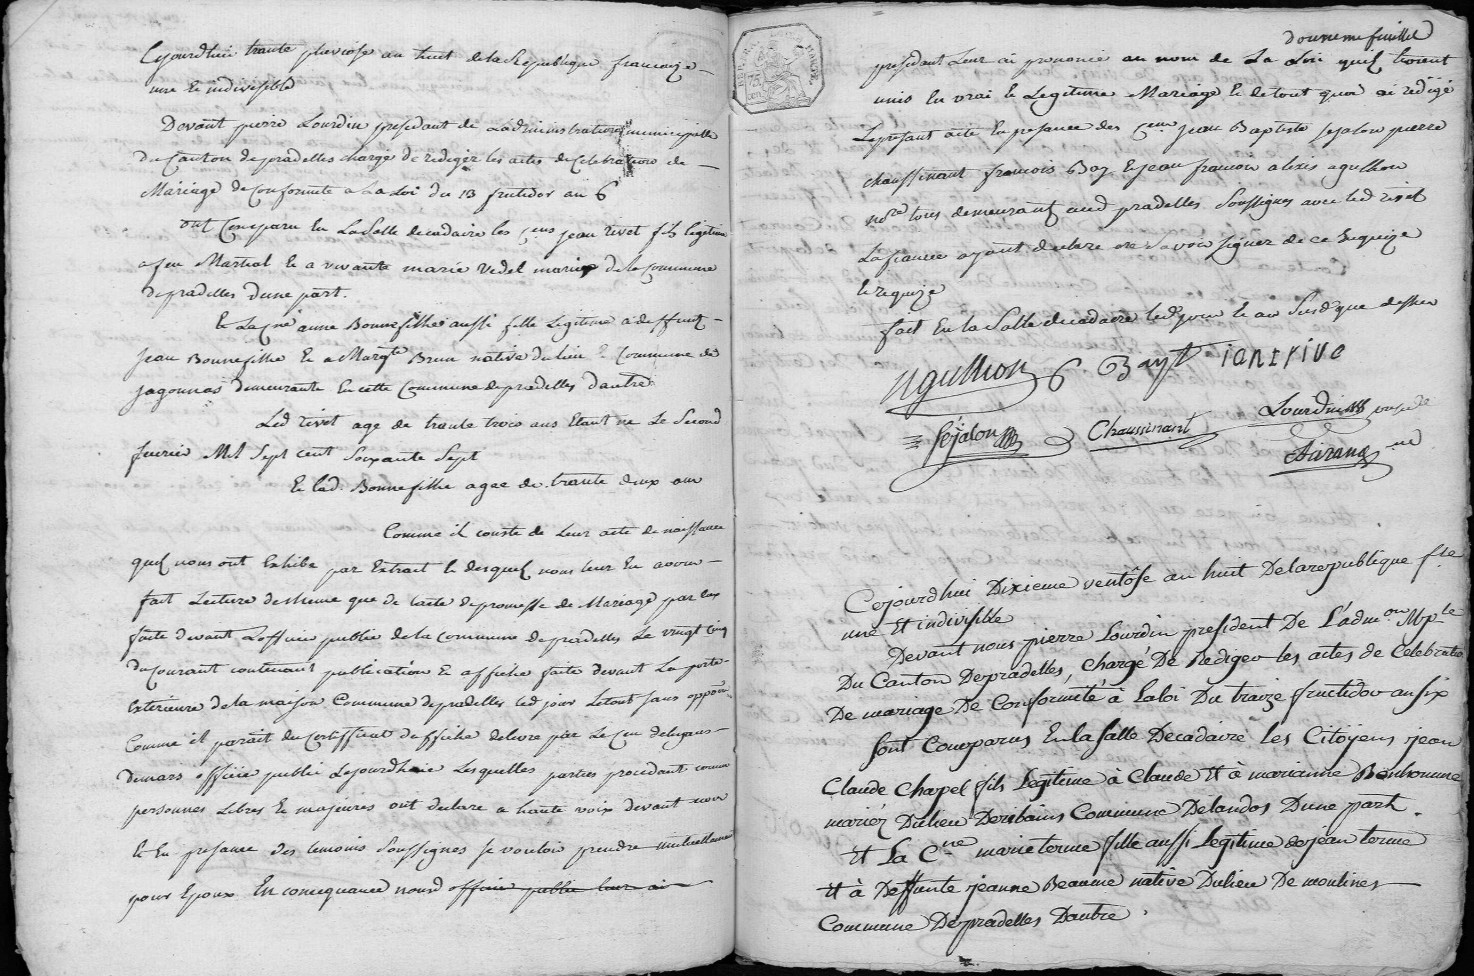 Cejourdhui trante pluviose an huit de la Republique francaize
une et indivisible
Devant pierre Lourdin presidant de Ladministration municipalle
du Canton de pradelles charge de rediger les actes de Celebration de
Mariage de Conformite a la Loi du 13 fructidor an 6
ont Comparu en La Salle decadaire les cens jean rivet fils legitime
a feu Martial et a vivante marie vedel maries de la Commune
de pradelles dune part.
et La cne anne Bonnefille aussi fille Legitime a deffunt
jean Bonnefille et a Margte Brun native du lieu et Commune de
jagonnas demeurante En cette Commune de pradelles dautre
Led rivet age de trante trois ans Etant ne Le Second
fevrier Mil Sept cent Soixante Sept
Et lad. Bonnefille agee de trante deux ans
Comme il conste de Leur acte de naissance
quils nous ont Exhibe par Extrait et desquels nous leur En avons
fait Lecture de meme que de Lacte de promesse de Mariage par eux
faite devant Lofficier public de la Commune de pradelles Le vingt cinq
du Courant contenant publication et affiche faite devant La porte
Exterieure de la maison Commune de pradelles led jour Le tout Sans oppon
Comme il parait du Certifficat daffiche delivre par Le Cen
officier public Cejourdhuie Lesquelles parties procedant comme
personnes Libres et majeures ont declare a haute voix devant nous
et En presance des temoins Soussignes se vouloir prendre mutuellement
pour Epoux En concequance nousd officier public leur ai
douzieme feuillet
president Leur ai prononcé au nom de La Loi quils etoient
unis En vrai et Legitime Mariage et de tout quoi ai redigé
Le presant acte En presance des cens jean Baptiste sejalon pierre
chaussinant francois Boy et jean francois alexis agulhon
nore tous demeurant aud pradelles Soussignes avec led rivet
La fiancee ayant declare ne Savoir signer de ce Requize
et requize
fait En la Salle decadaire led jour et an Susd que dessus
Agulhon Boy ian rive
Sejalon Chaussinant Lourdin
Cejourdhui Dixieme ventôse an huit De la republique fse
une Et indivisible
Devant nous pierre Lourdin president De L'admon Mple
Du Canton Depradelles, chargé De Rediger les actes de Celebration
De mariage De Conformité à La loi Du traize fructidor an six
Sont Comparus En la Salle Decadaire Les Citoÿens jean
Claude Chapel fils Legitime à Claude Et à marianne Bonhomme
mariéz Du lieu De ribains Commune De landos D'une part
Et La Cne marie terme fille aussi Legitime de jean terme
Et à Deffunte jeanne Beaume native Du lieu De moulines
Commune De pradelles D'autre.